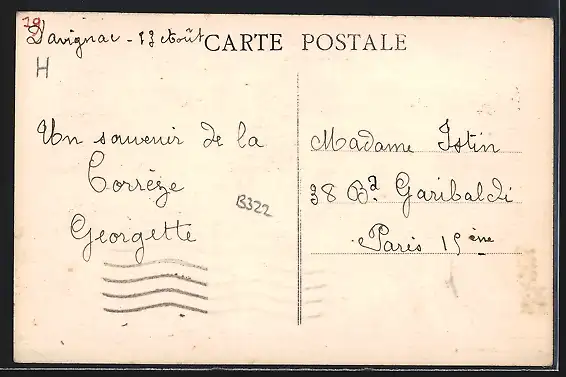 19
Davignac - 13 Août
CARTE POSTALE
H
Un souvenir de la
Corrèze
Georgette
B322
Madame Istin
38 Bd. Garibaldi
Paris 15ème